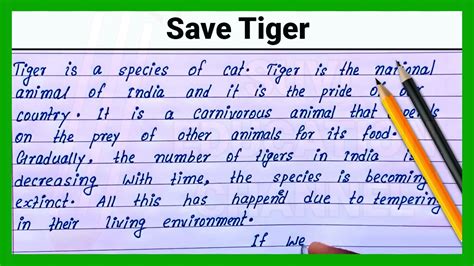 Save Tiger
Tiger is a species of cat. Tiger is the national
animal of India and it is the pride of our
country. It is a carnivorous animal that
on the prey of other animals for its food.
Gradually, the number of tigers in India is
decreasing with time, the species is becoming
extinct. All this has happend due to tempering
in their living environment.
If We